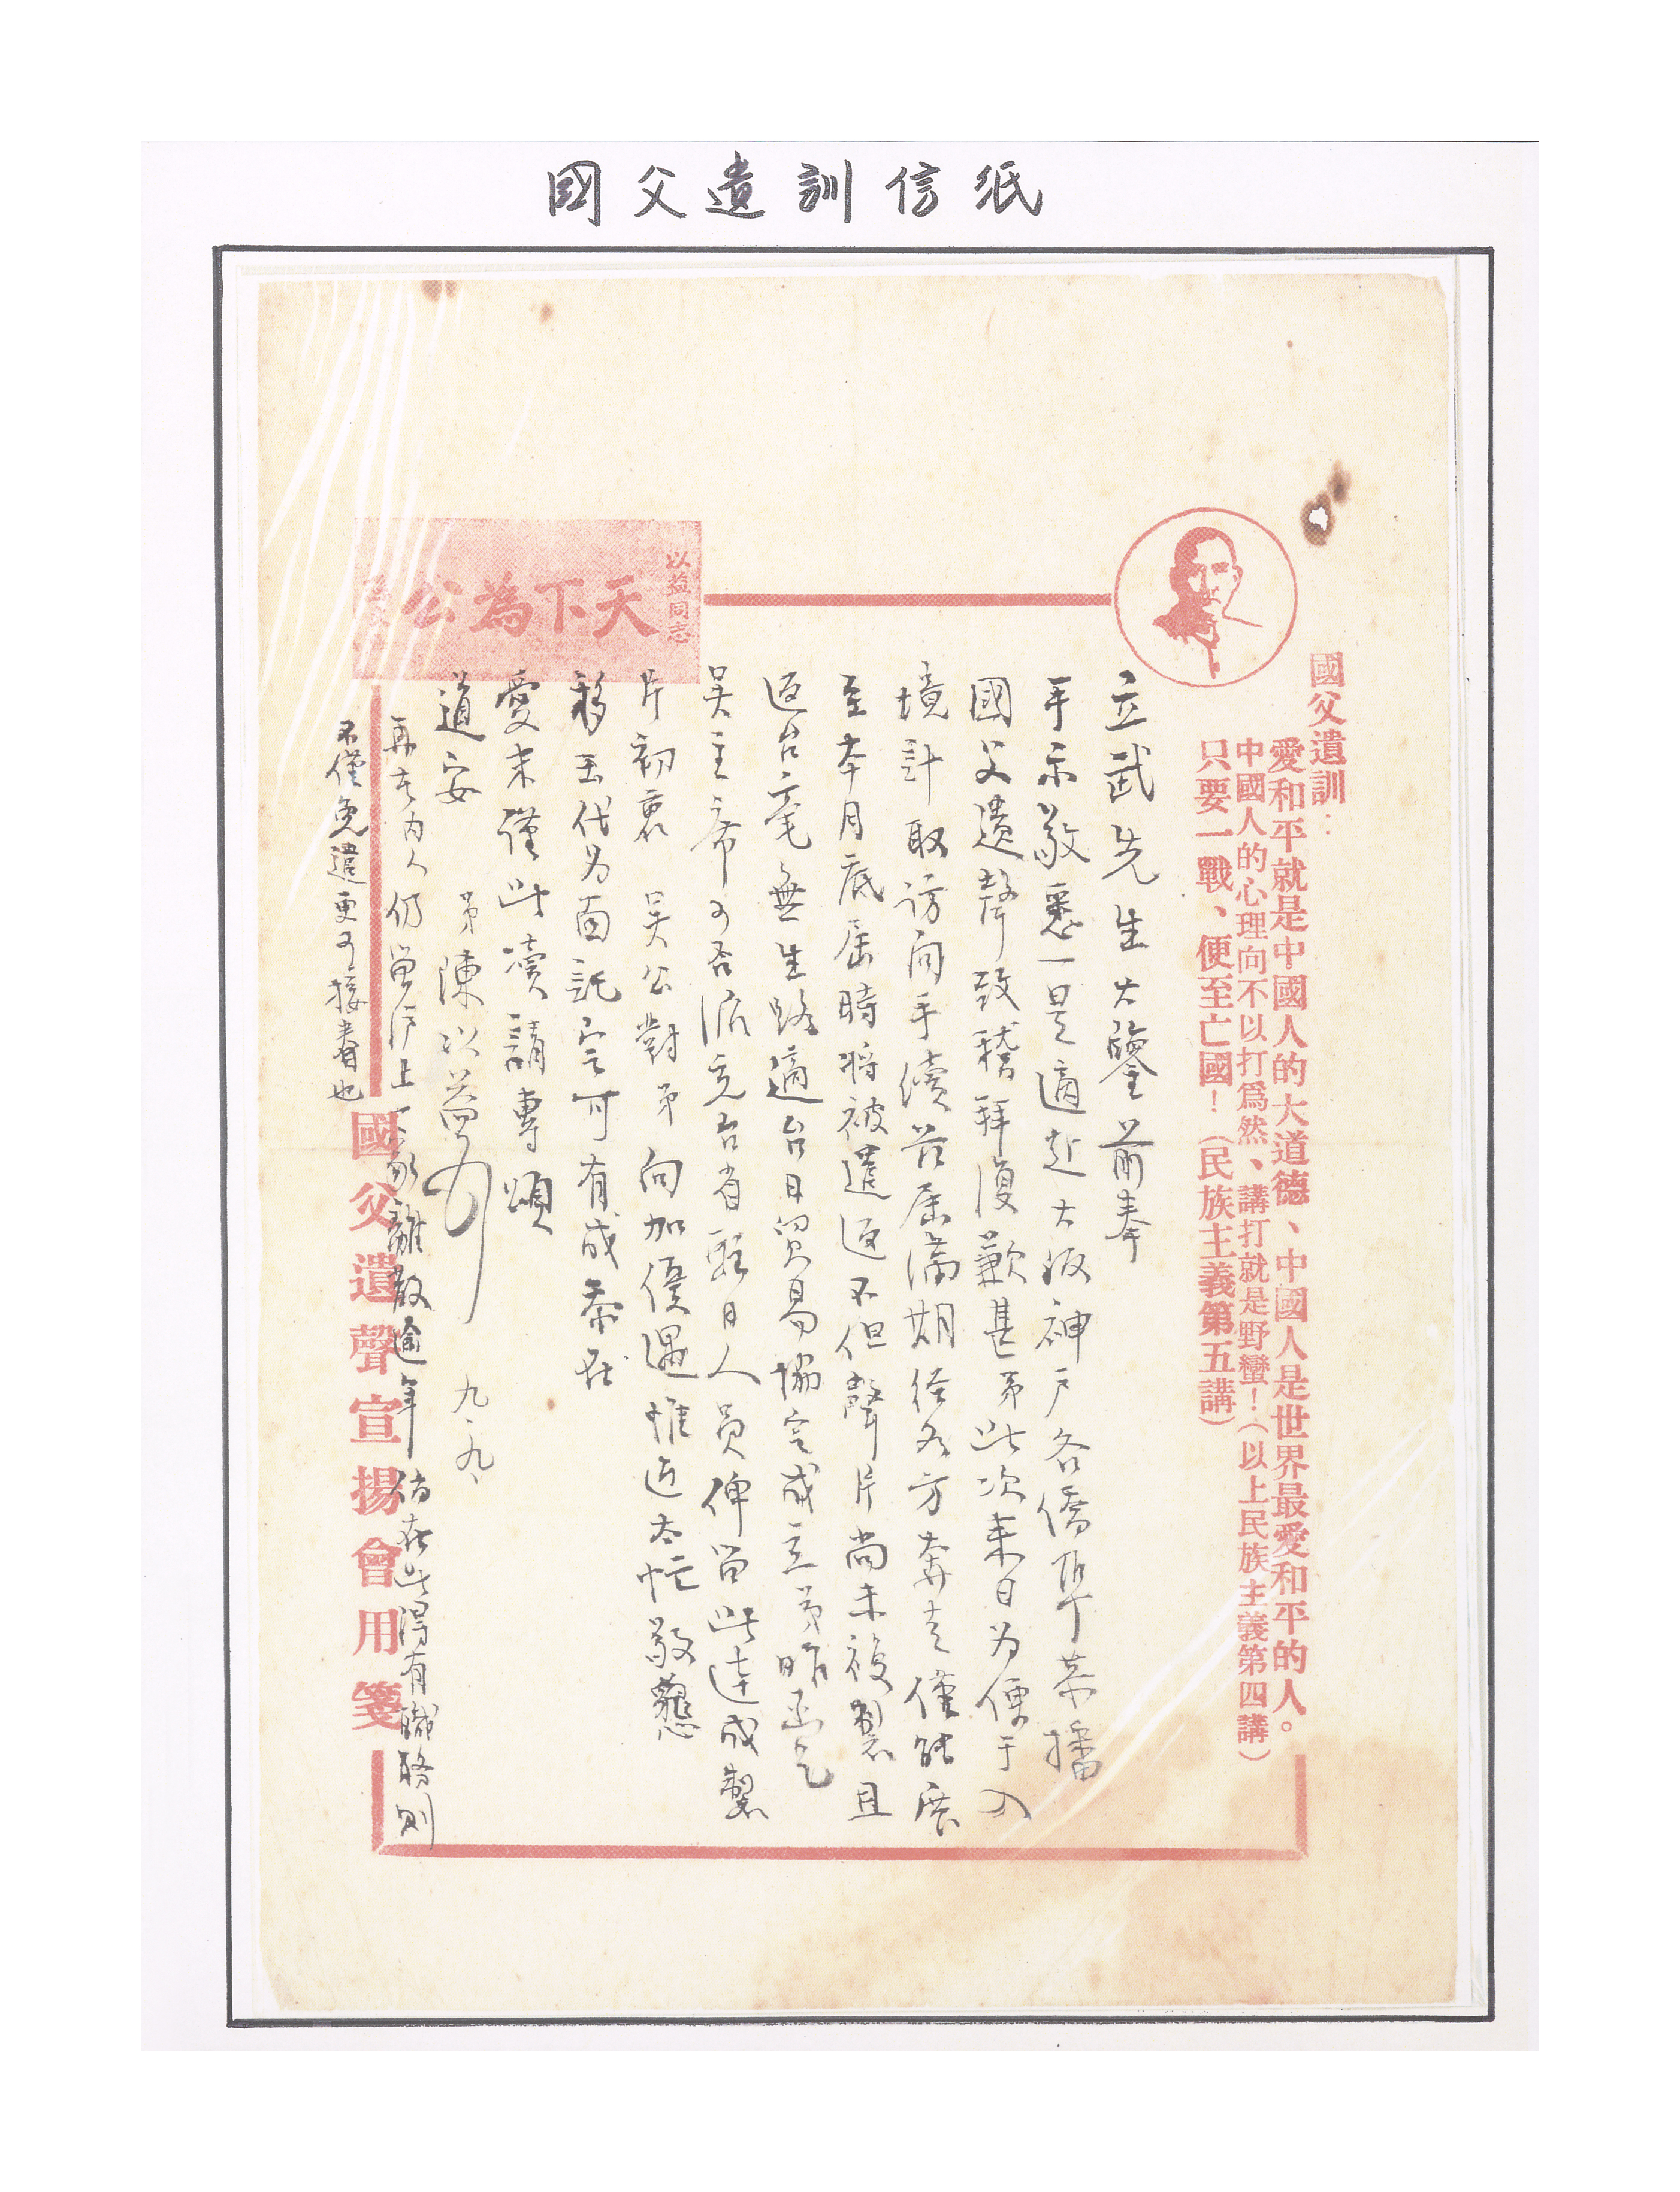 國父遺訓信紙
國父遺訓：
愛和平就是中國人的大道德、中國人是世界最愛和平的人。
中國人的心理向不以打爲然、講打就是野蠻！（以上民族主義第四講）
只要一戰、便至亡國！（民族主義第五講）
以益同志
天下為公
立武先生大鑒前奉
手示敬悉一是適赴大阪神戶各僑華恭播
國父遺聲致稽拜復歉甚弟此次来日为便于入
境計取访问手續茲届滿期経各方奔走僅能展
至本月底届時将被遣返不但聲片尚未複製且
返台毫無生路適台日貿易協定成立弟昨函乞
吴主席可否派充台省駐日人員俾留此達成製
片初衷 吴公對弟向加優遇惟近太忙敬懇
移玉代为面託定可有成恭在
愛末謹此瀆請專頌
道安 弟陳以益 九、九、
再者内人仍留沪上一家離散逾年倘在此得有職務則
不僅免遣更可接眷也
國父遺聲宣揚會用箋